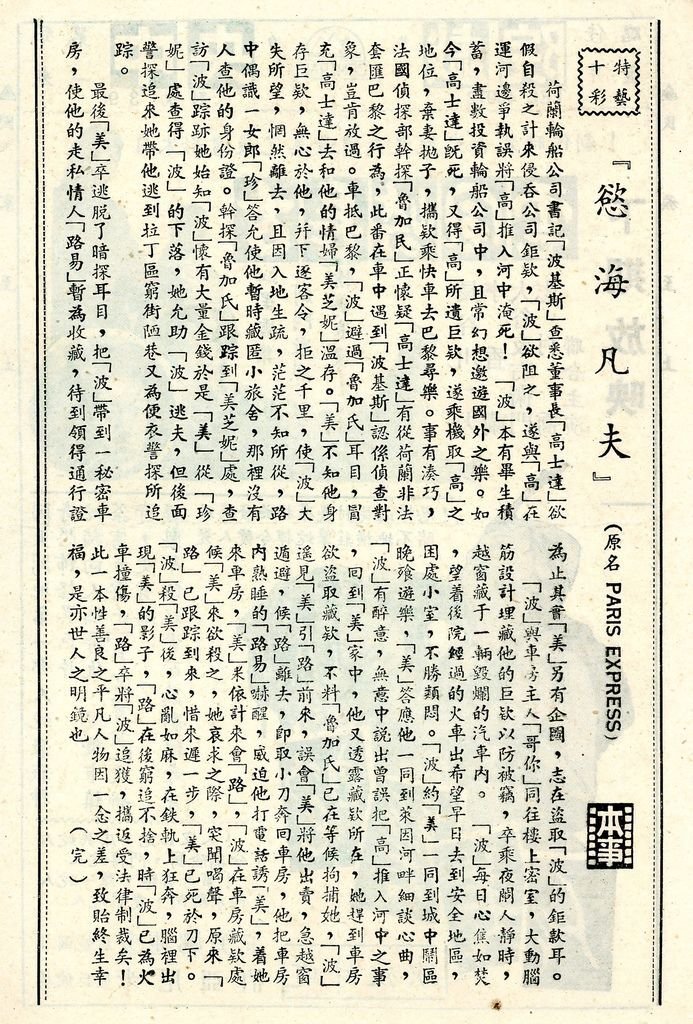 特藝
十彩
『慾海凡夫』
(原名 PARIS EXPRESS)
本事
荷蘭輪船公司書記「波基斯」查悉董事長「高士達」欲
假自殺之計來侵吞公司鉅欵，「波」欲阻之，遂與「高」在
運河邊爭執誤將「高」推入河中淹死！　「波」本有畢生積
蓄，盡數投資輪船公司中，且常幻想遨遊國外之樂。如
今「高士達」旣死，又得「高」所遺巨欵，遂乘機取「高」之
地位，棄妻拋子，攜欵乘快車去巴黎尋樂。事有湊巧，
法國偵探部幹探「魯加民」正懷疑「高士達」有從荷蘭非法
套匯巴黎之行為，此番在車中遇到「波基斯」認係偵查對
象，豈肯放過。車抵巴黎，「波」避過「魯加氏」耳目，冒
充「高士達」去和他的情婦「美芝妮」溫存。「美」不知他身
存巨欵，無心於他，幷下逐客令，拒之千里，使「波」大
失所望，惘然離去，且因入地生疏，茫茫不知所從，路
中偶識一女郎「珍」答允使他暫時藏匿小旅舍，那裡沒有
人查他的身份證。幹探「魯加氏」跟踪到「美芝妮」處，查
訪「波」踪跡她始知「波」懷有大量金錢於是「美」從「珍
妮」處查得「波」的下落，她允助「波」逃夫，但後面
警探追來她帶他逃到拉丁區窮街陋巷又為便衣警探所追
踪。
最後「美」卒逃脫了暗探耳目，把「波」帶到一秘密車
房，使他的走私情人「路易」暫為收藏，待到領得通行證
為止其實「美」另有企圖，志在盜取「波」的鉅欵耳。
「波」與車房主人「哥你」同往樓上密室，大動腦
筋設計埋藏他的巨欵以防被竊，卒乘夜闌人靜時，
越窗藏于一輛毀爛的汽車內。　「波」每日心焦如焚
，望着後院經過的火車出希望早日去到安全地區，
困處小室，不勝類悶。「波」約「美」一同到城中鬧區
晚飱遊樂，「美」答應他一同到萊因河畔細談心曲，
「波」有醉意，無意中說出曾誤把「高」推入河中之事
，回到「美」家中，他又透露藏欵所在，她趕到車房
欲盜取藏欵，不料「魯加氏」已在等候拘捕她，「波」
遥見「美」引「路」前來，誤會「美」將他出賣，急越窗
遁避，候「路」離去，卽取小刀奔回車房，他把車房
內熟睡的「路易」嚇醒，威迫他打電話誘「美」，着她
來車房，「美」果依計來會「路」，「波」在車房藏欵處
候「美」來欲殺之，她哀求之際，突聞喝聲，原來「
路」已跟踪到來，惜來遲一步，「美」已死於刀下。
「波」殺「美」後，心亂如麻，在鉄軌上狂奔，腦裡出
現「美」的影子，「路」在後窮追不捨，時「波」已為火
車撞傷，「路」卒將「波」追獲，攜返受法律制裁矣！
此一本性善良之平凡人物因一念之差，致貽終生幸
福，是亦世人之明鏡也　　　（完）